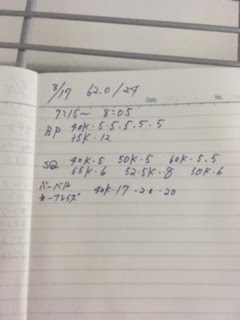 8/17 62.0/24
Date
No.
7:15~ 8:05
BP 40K・5・5・5・5・5
35K・12
SQ 40K・5 50K・5 60K・5・5
65K・6 52.5K・8 50K・6
バーベル
カーフレイズ 40K・17・20・20